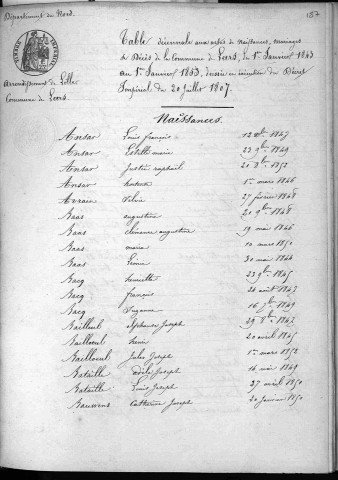 Département du Nord.
187
Table décennale aux actes de naissances, mariages
& Décès de la Commune de Leers, du 1er Janvier 1843
au 1er Janvier 1853, dressée en exécution du Décret
Impérial du 20 Juillet 1807.
Arrondissement de Lille
Commune de Leers.
Naissances.
Ansar Louis françois 12 1847
Ansar Estelle marie 23 9bre 1849
Ansar Justin raphaël 21 8bre 1852
Ansar 1er mars 1846
Silvie 27 février 1848
Baas augustine 21 9bre 1848
Baas clémence augustine 19 mai 1846
Baas maria 10 mars 1850
Baas Léonie 30 mai 1844
Bacq henriette 23 9bre 1845
Bacq françois 24 août 1847
Bacq Suzanne 16 7bre 1849
Bailleul alphonse Joseph 29 8bre 1847
Bailloeul henri 20 avril 1845
Bailloeul Jules Joseph 1er mars 1852
Bataille adèle Joseph 16 mai 1849
Bataille Louis Joseph 27 avril 1850
Bauwens Catherine Joseph 20 Janvier 1850